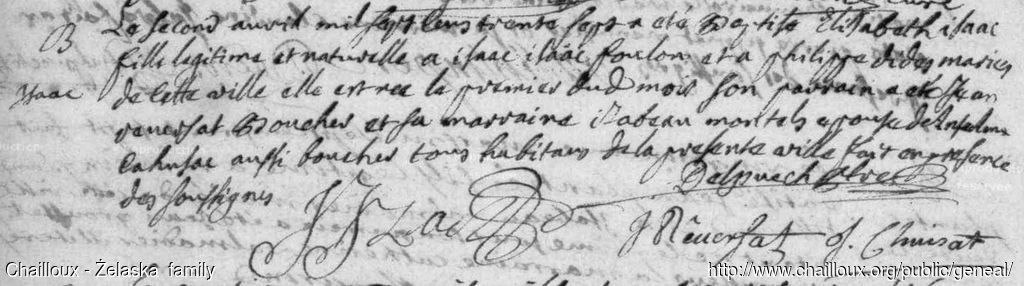 B Le second avril mil sept cens trente sept a eté Baptisée Elisabeth isaac
fille legitime et naturelle a isaac isaac foulon et a philippe dides mariés
Isaac de cette ville elle est nee le premier dud mois son parrain a eté Jean
reversat Boucher et sa marraine izabeau martels epouse de Anselme
Cahusac aussi boucher tous habitans de la presente ville fait en presence
des soussignes Delpuech
J Izac J Reversat
Chailloux - Żelaska family http://www.chailloux.org/public/geneal/